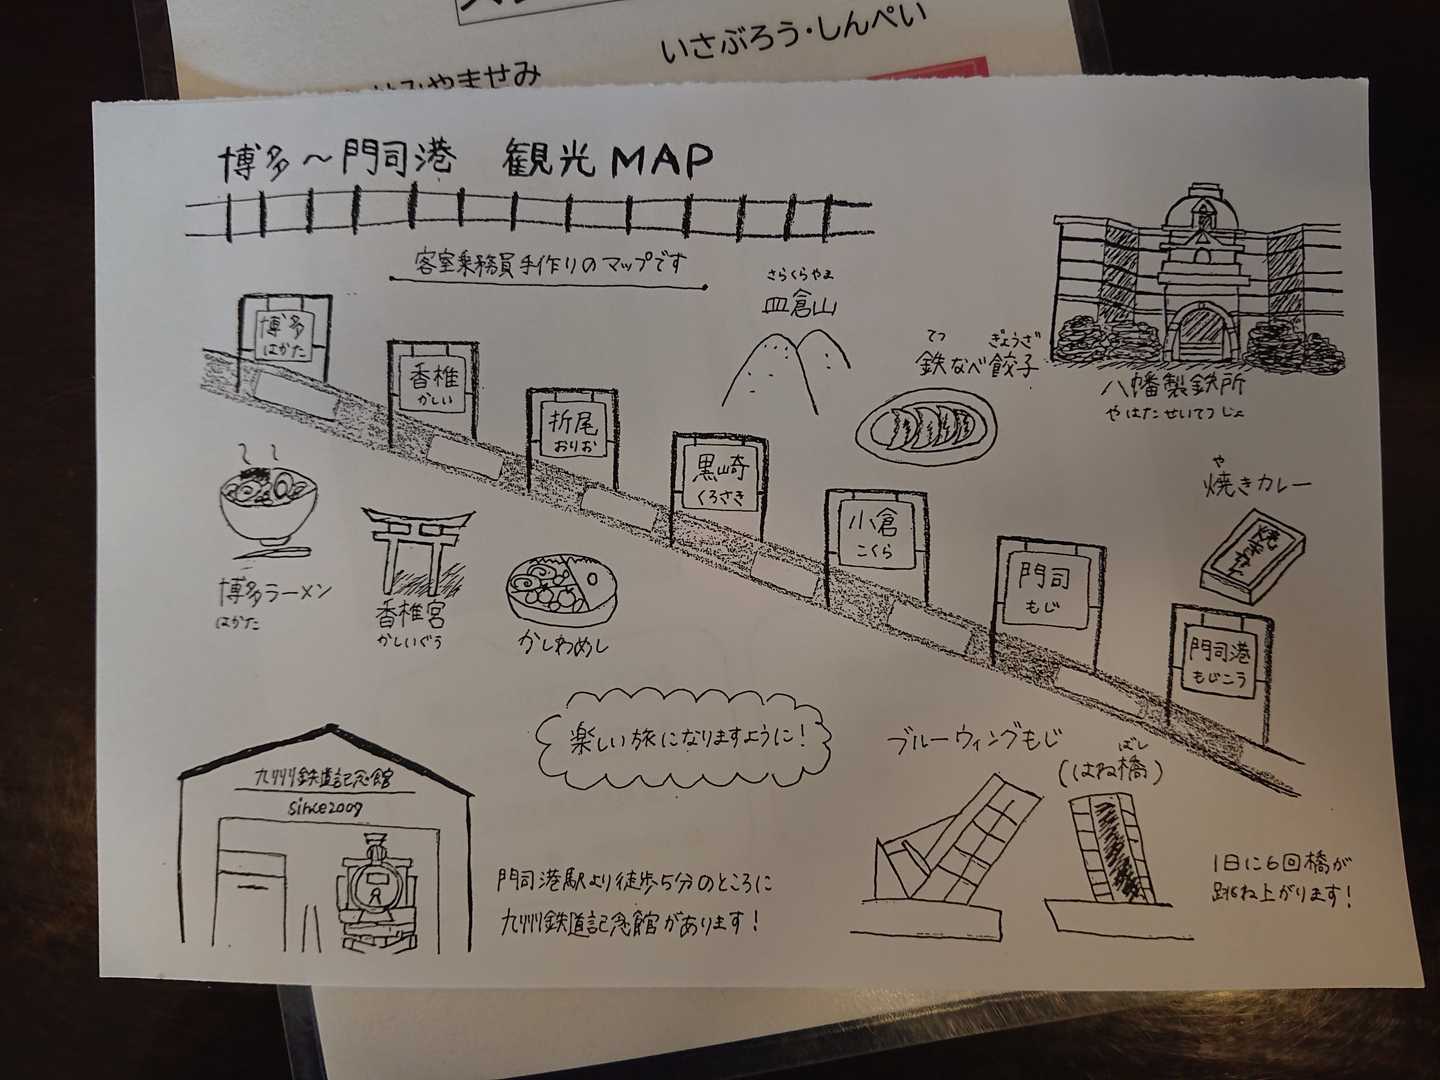 いさぶろう・しんぺい
やませみ
博多～門司港 観光MAP
客室乗務員手作りのマップです
さらくらやま
皿倉山
てつ ぎょうざ
鉄なべ餃子
八幡製鉄所
やはたせいてつじょ
博多
はかた
香椎
かしい
折尾
おりお
黒崎
くろさき
小倉
こくら
門司
もじ
門司港
もじこう
や
焼きカレー
博多ラーメン
はかた
香椎宮
かしいぐう
かしわめし
楽しい旅になりますように!
ブルーウィングもじ
ばし
(はね橋)
1日に6回橋が
跳ね上がります!
九州鉄道記念館
since2007
門司港駅より徒歩5分のところに
九州鉄道記念館があります!